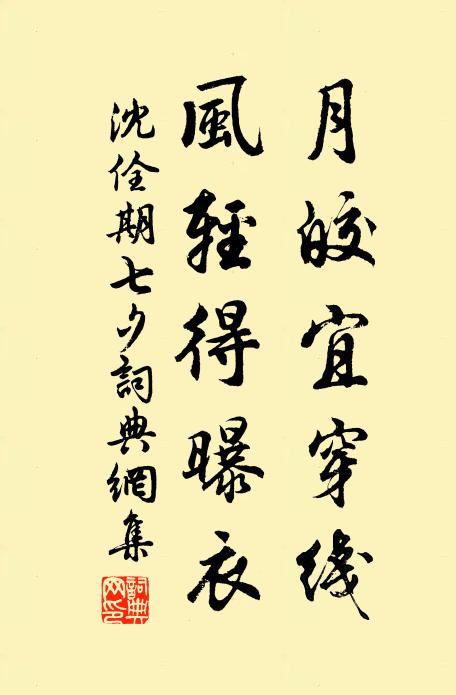 月皎宜穿线
風輕得曝衣
沈佺期七夕詞典網集
詞典網印